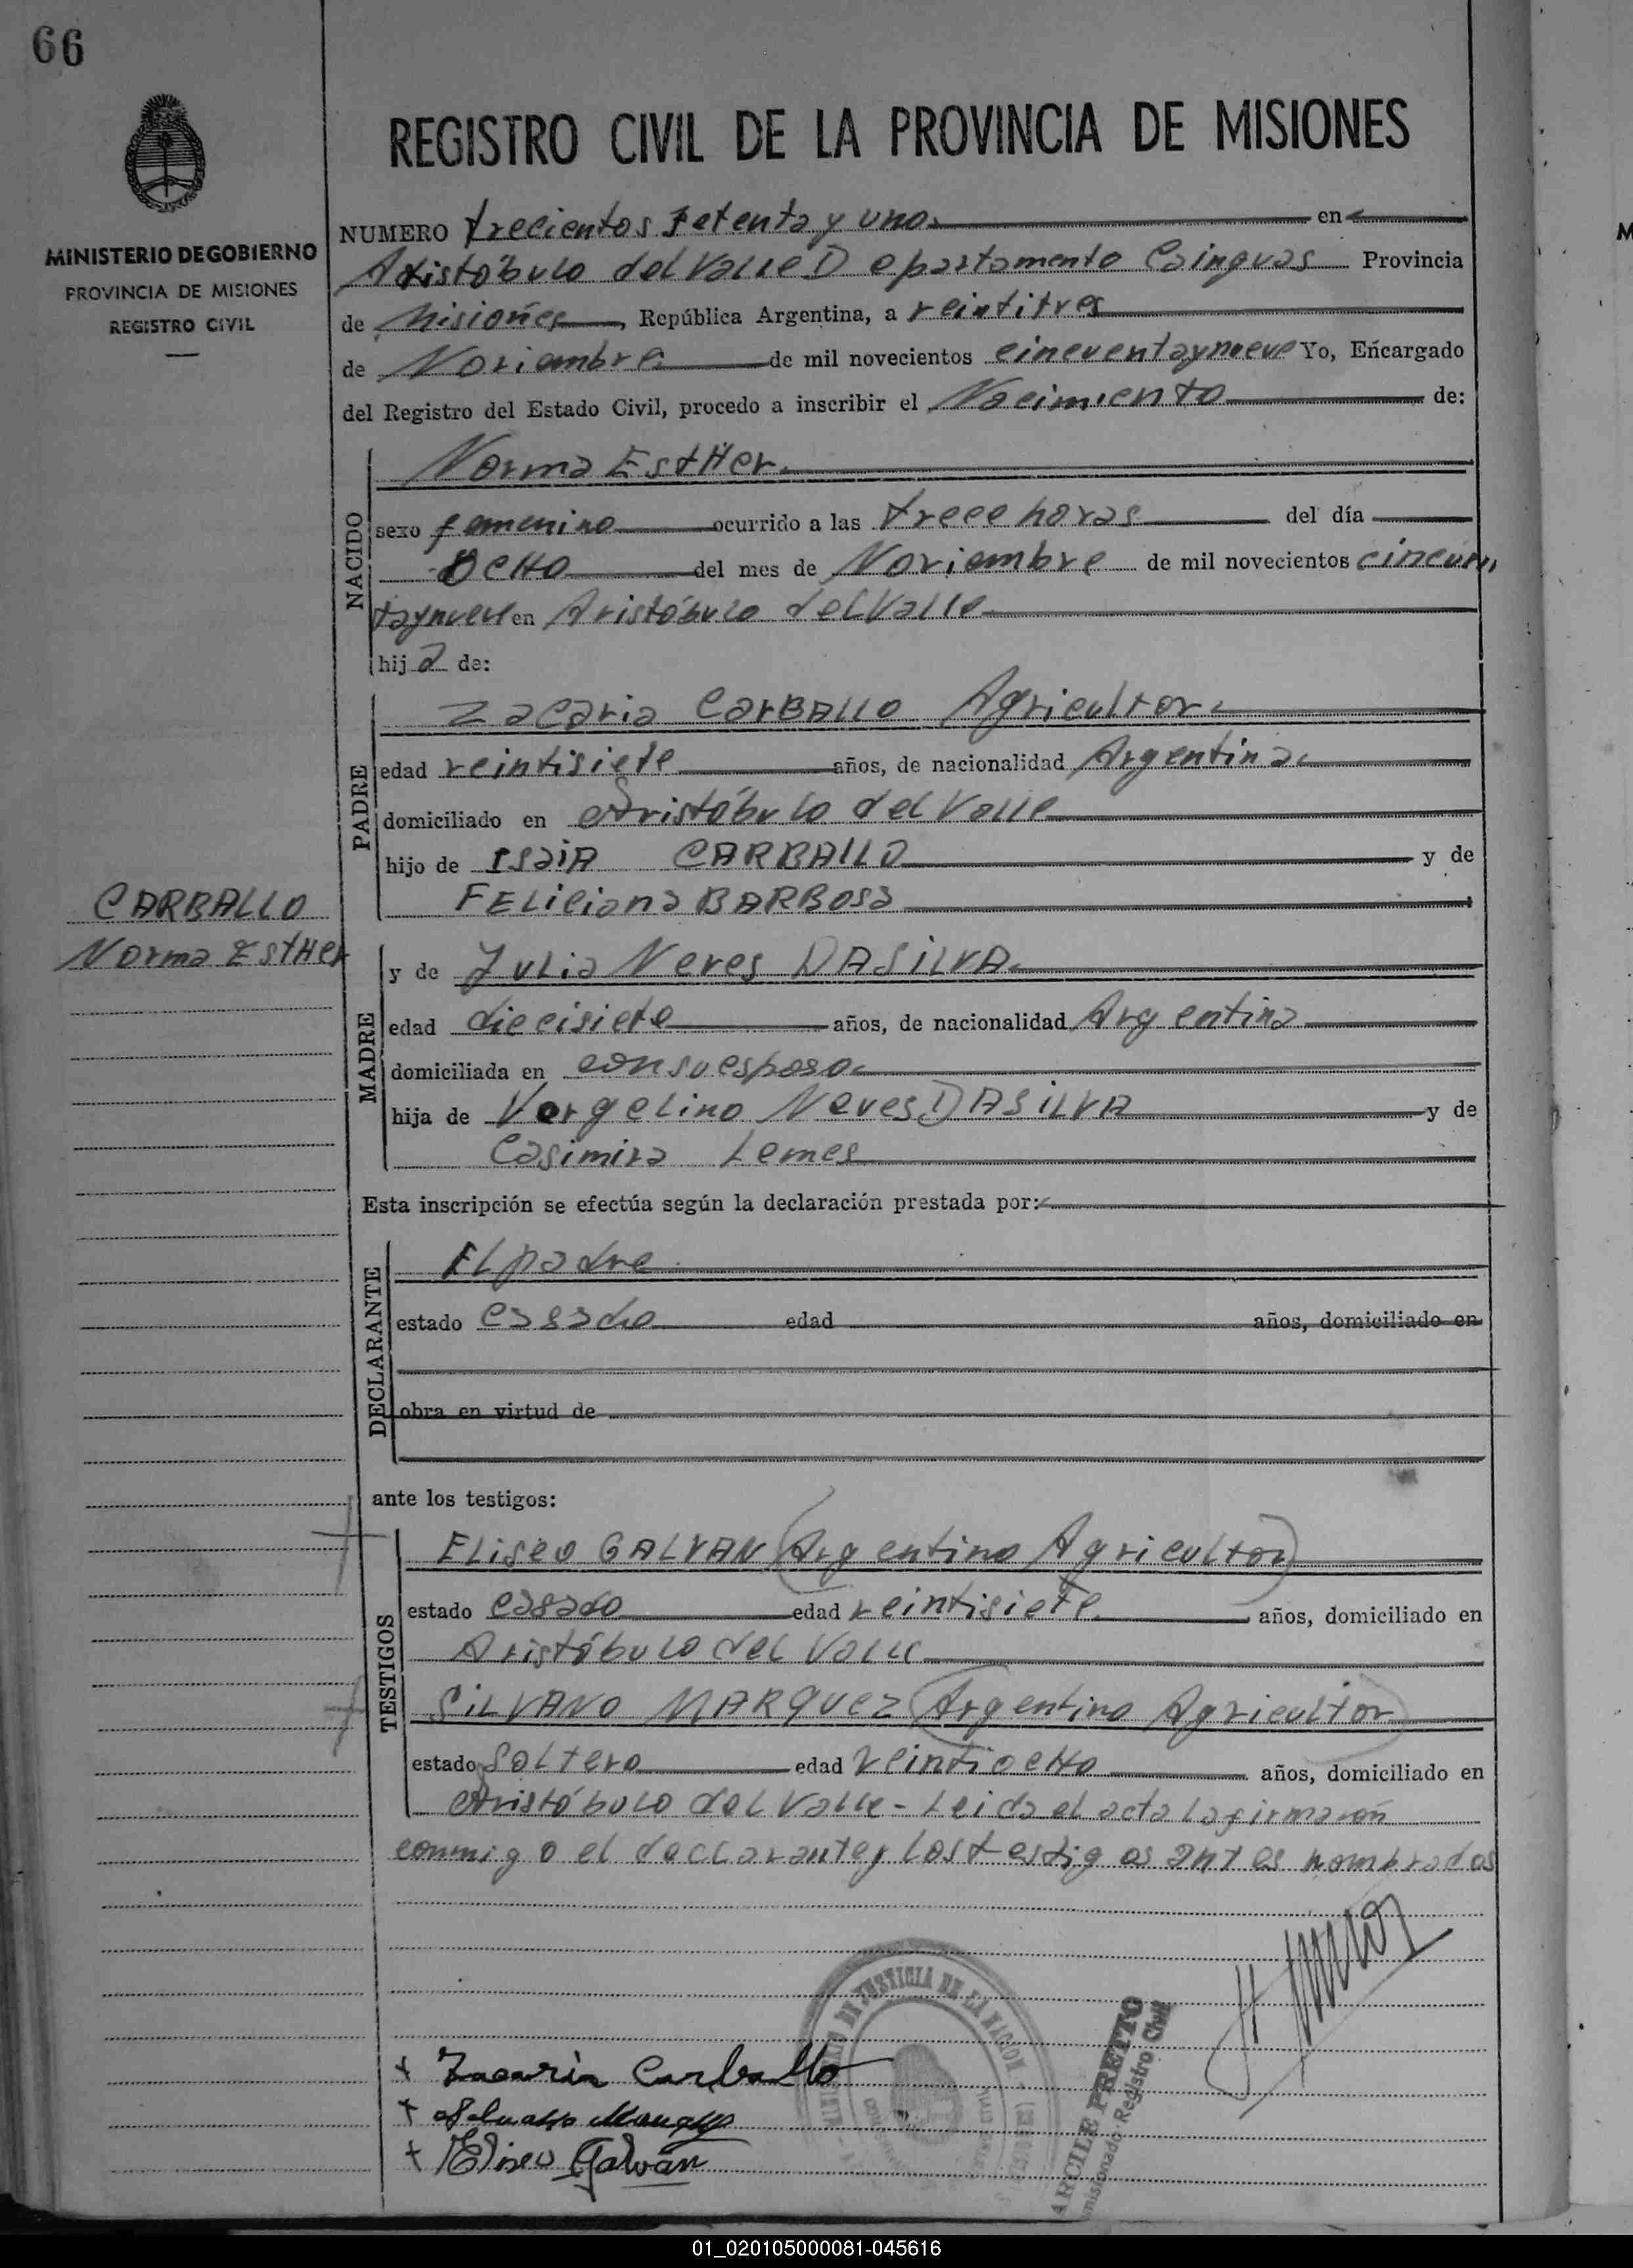 66
MINISTERIO DE GOBIERNO
PROVINCIA DE MISIONES
REGISTRO CIVIL
REGISTRO CIVIL DE LA PROVINCIA DE MISIONES
NUMERO trecientos setenta y uno en
Aristóbulo del Valle Departamento Cainguas Provincia
de Misiones, República Argentina, a veintitres
de Noviembre de mil novecientos cincuentaynueve Yo, Encargado
del Registro del Estado Civil, procedo a inscribir el Nacimiento de:
NACIDO
Norma EstHer
sexo femenino ocurrido a las trece horas del día
ocHo del mes de Noviembre de mil novecientos cincuen
taynueve en Aristóbulo del Valle
hija de:
PADRE
Zacaria CarBAllo Agricultor
edad veintisiete años, de nacionalidad Argentina
domiciliado en Aristóbulo del Valle
hijo de IsaiA CARBAllO y de
FELiciana BARBosa
CARBALLO
Norma EstHer
MADRE
y de Julia Neves DASiLVA
edad diecisiete años, de nacionalidad Argentina
domiciliada en consuesposo
hija de Vergelino Neves DASiLVA y de
Casimira Lemes
Esta inscripción se efectúa según la declaración prestada por:
DECLARANTE
El padre
estado casado edad años, domiciliado en
obra en virtud de
ante los testigos:
TESTIGOS
ELiseo GALVAN (Argentino Agricultor)
estado casado edad veintisiete años, domiciliado en
Aristóbulo del Valle
SiLVANO MARquez (Argentino Agricultor)
estado soltero edad veintiocHo años, domiciliado en
Aristóbulo del Valle - Leida el acta lafirmarón
conmigo el declarantey los testigos antes nombrados
MINISTERIO DE JUSTICIA DE LA NACION
ARCILE PRETTO
Comisionado Registro Civil
+ Zacaria Carballo
+
+ Eliseo Galván
01_020105000081-045616